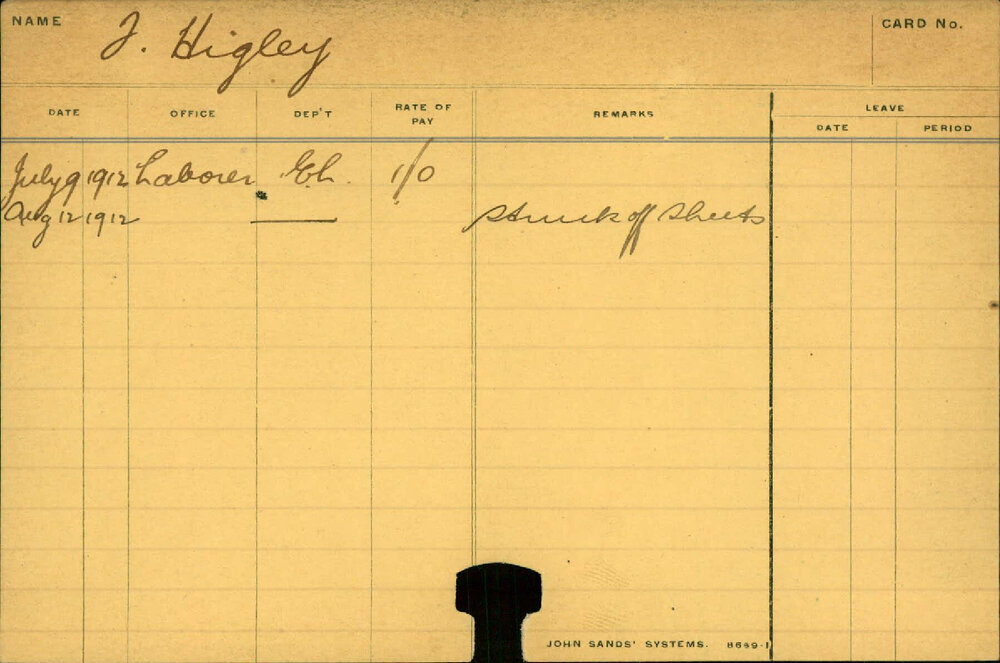 NAME J. Higley CARD No.
DATE OFFICE DEP'T RATE OF PAY REMARKS LEAVE
DATE PERIOD
July 9 1912 Laborer 1/0
Aug 12 1912 — Struck off Sheets
JOHN SANDS' SYSTEMS. 8689-1